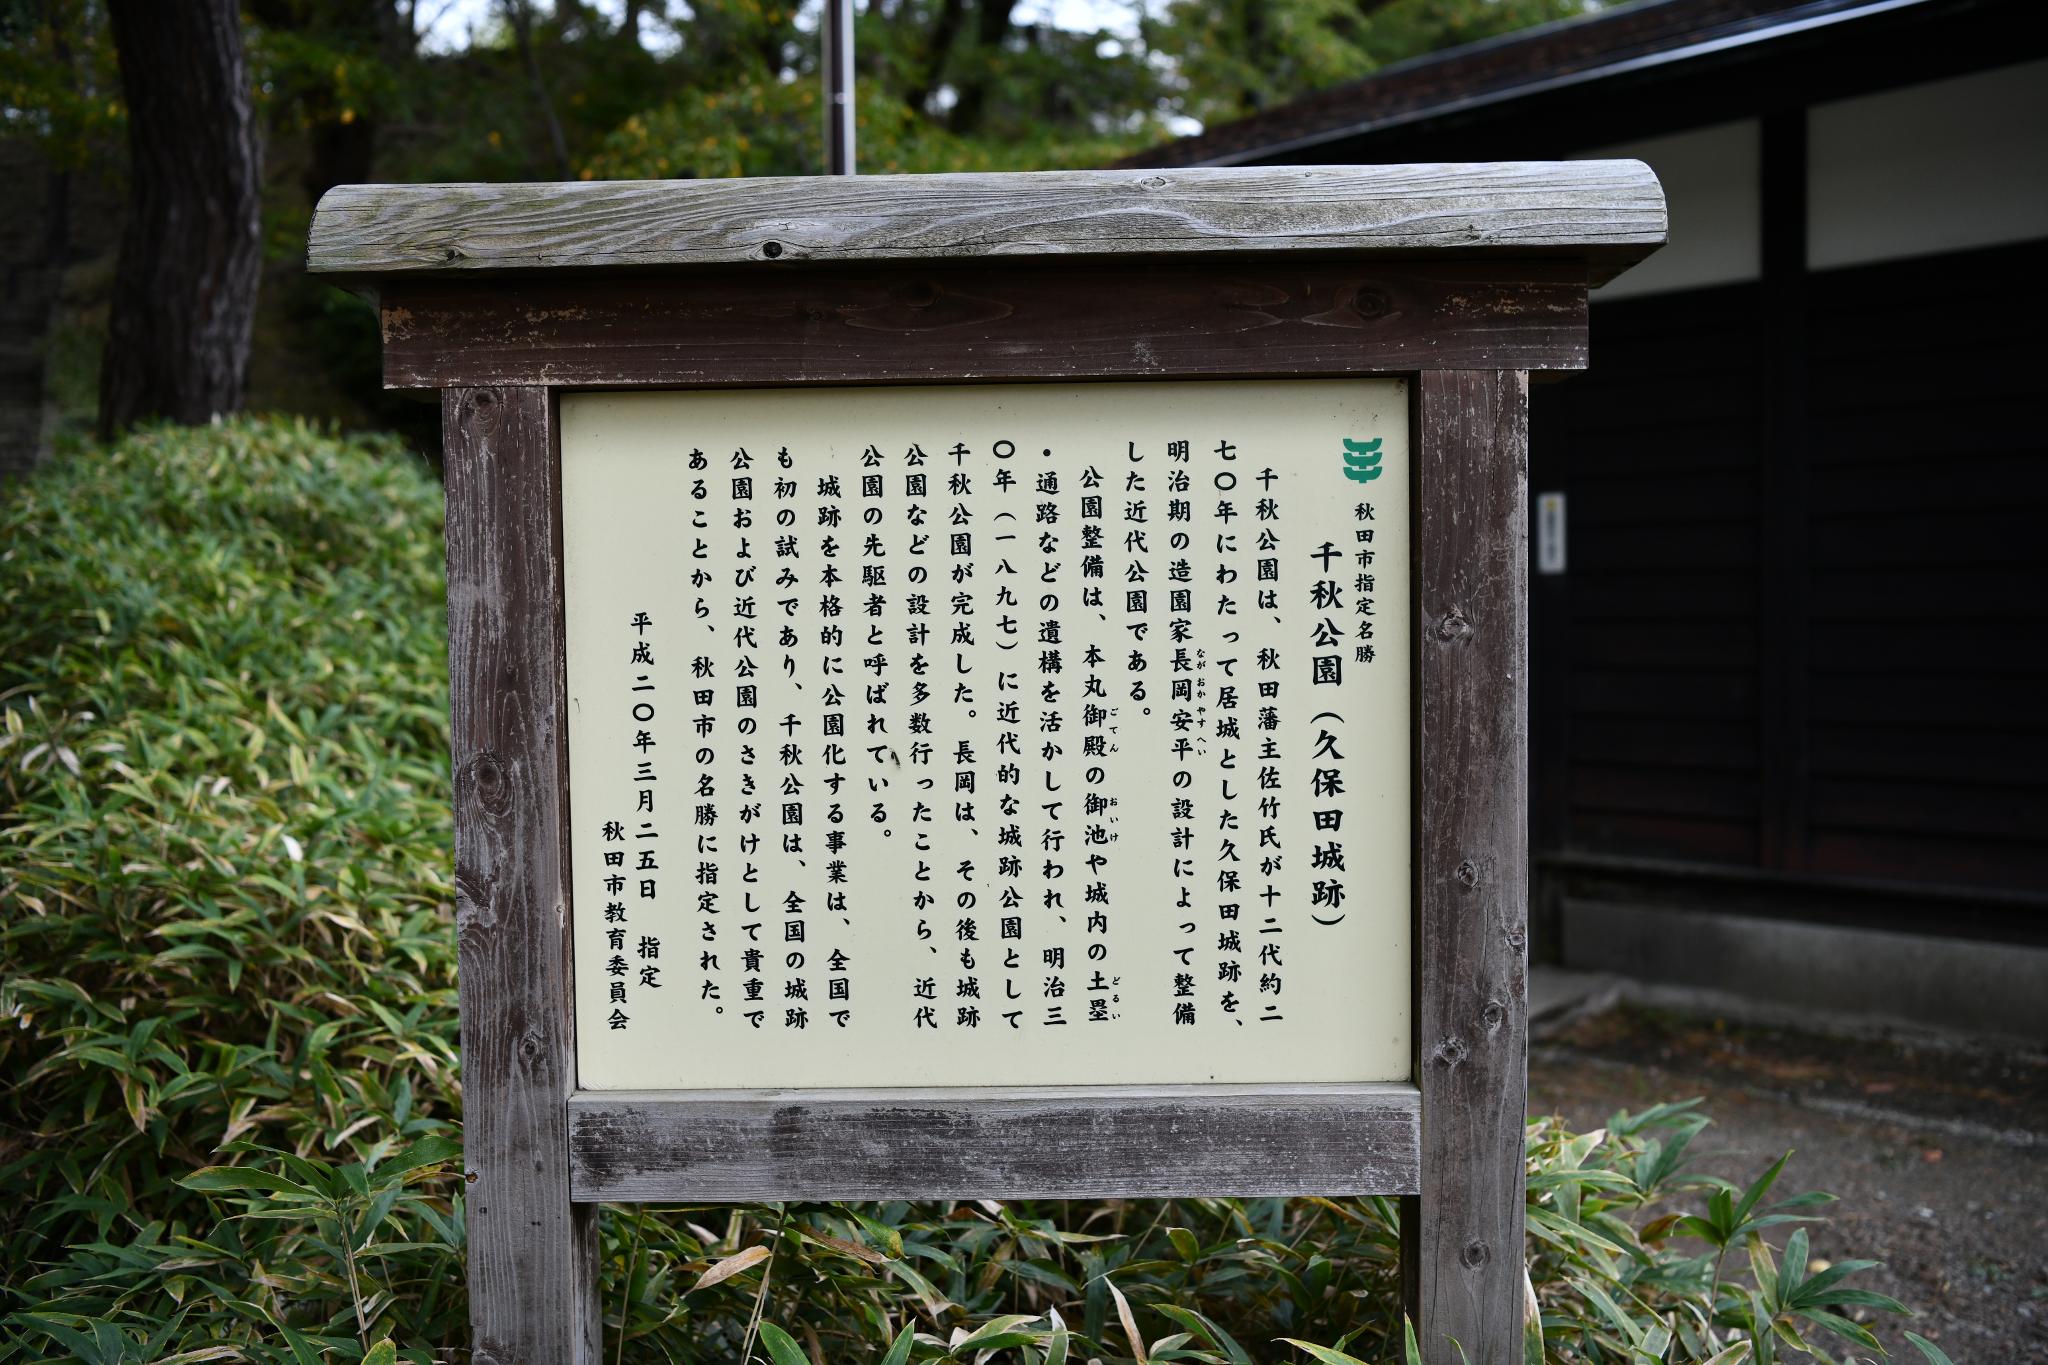 秋田市指定名勝
千秋公園（久保田城跡）
千秋公園は、秋田藩主佐竹氏が十二代約二
七〇年にわたって居城とした久保田城跡を、
明治期の造園家長岡安平の設計によって整備
ながおかやすへい
した近代公園である。
公園整備は、本丸御殿の御池や城内の土塁
ごてん
おいけ
どるい
・通路などの遺構を活かして行われ、明治三
〇年（一八九七）に近代的な城跡公園として
千秋公園が完成した。長岡は、その後も城跡
公園などの設計を多数行ったことから、近代
公園の先駆者と呼ばれている。
城跡を本格的に公園化する事業は、全国で
も初の試みであり、千秋公園は、全国の城跡
公園および近代公園のさきがけとして貴重で
あることから、秋田市の名勝に指定された。
平成二〇年三月二五日　指定
秋田市教育委員会